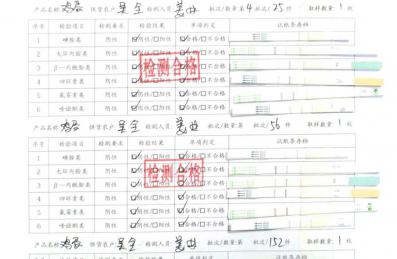 产品名称 鸡蛋 供货农户 检测人员 批次/数量第4批次/25件 取样数量:1枚
序号 检验项目 检测要求 检验结果 单项判定 试纸条存档
1 磺胺类 阴性 ☑阴性/□阳性 ☑合格/□不合格
2 大环内酯类 阴性 ☑阴性/□阳性 ☑合格/□不合格
3 β-内酰胺类 阴性 ☑阴性/□阳性 ☑合格/□不合格
4 四环素类 阴性 ☑阴性/□阳性 ☑合格/□不合格
5 氟苯尼类 阴性 ☑阴性/□阳性 ☑合格/□不合格
6 喹诺酮类 阴性 ☑阴性/□阳性 ☑合格/□不合格
检测合格
产品名称 鸡蛋 供货农户 检测人员 批次/数量:第 批次/56件 取样数量:1枚
序号 检验项目 检测要求 检验结果 单项判定 试纸条存档
1 磺胺类 阴性 ☑阴性/□阳性 ☑合格/□不合格
2 大环内酯类 阴性 ☑阴性/□阳性 ☑合格/□不合格
3 β-内酰胺类 阴性 ☑阴性/□阳性 ☑合格/□不合格
4 四环素类 阴性 ☑阴性/□阳性 ☑合格/□不合格
5 阴性 ☑阴性/□阳性 ☑合格/□不合格
6 喹诺酮类 阴性 ☑阴性/□阳性 ☑合格/□不合格
检测合格
产品名称 鸡蛋 供货农户 检测人员 批次/数量:第 批次/152件 取样数量:1枚
序号 检验项目 检测要求 检验结果 单项判定 试纸条存档